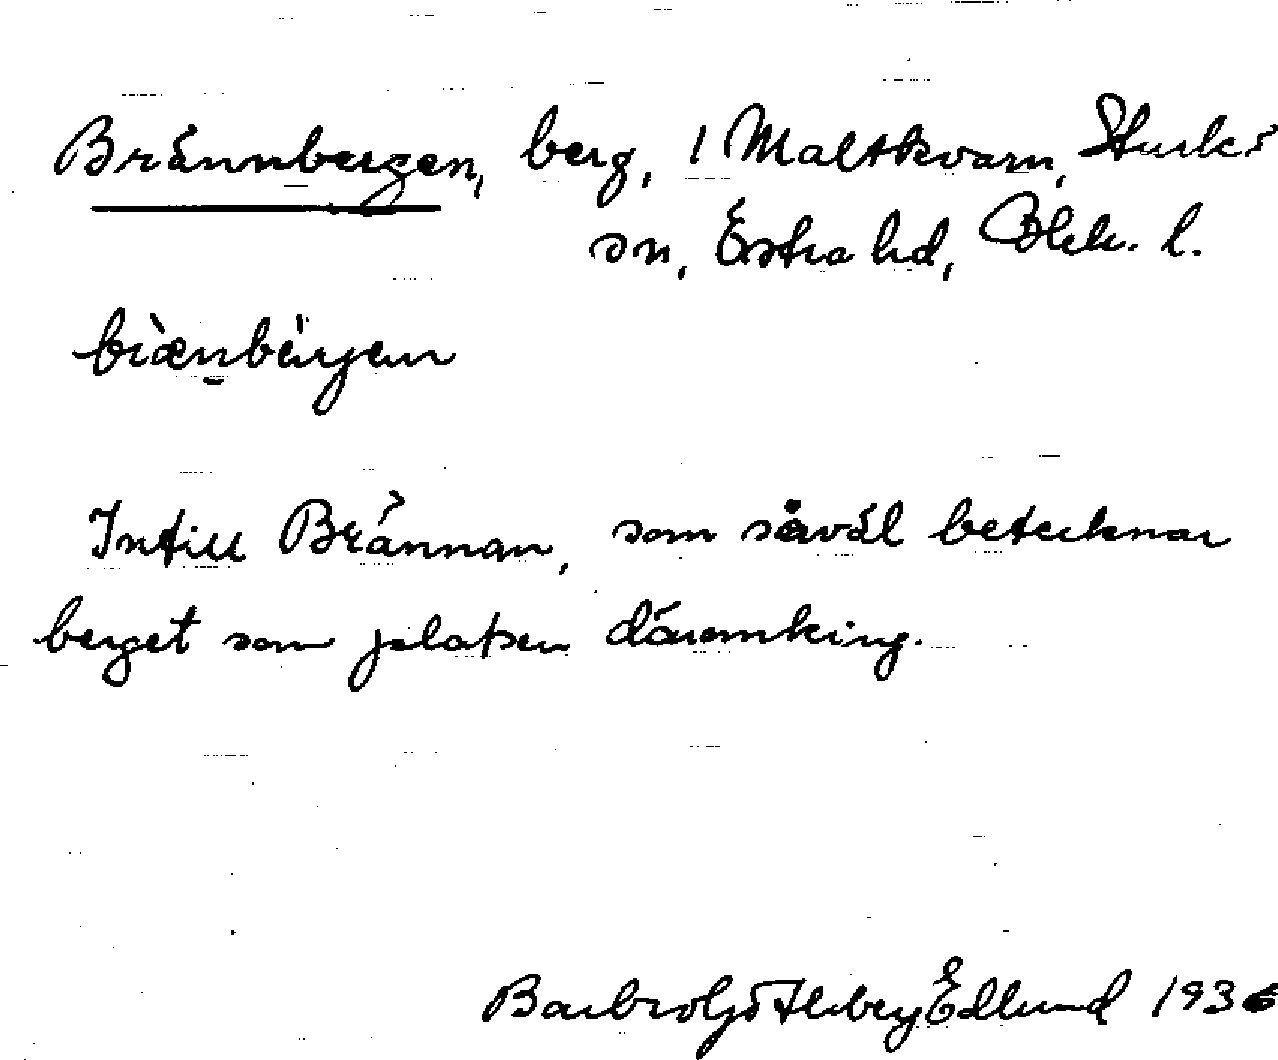 Brännbergen, berg, i Maltkvarn, Sturkö
sn, Östra hd, Blek. l.
bræ̀nbärjen
Intill Brännan, som såväl betecknar
berget som platsen däromkring.
Barbro Götlberg Edlund 1936